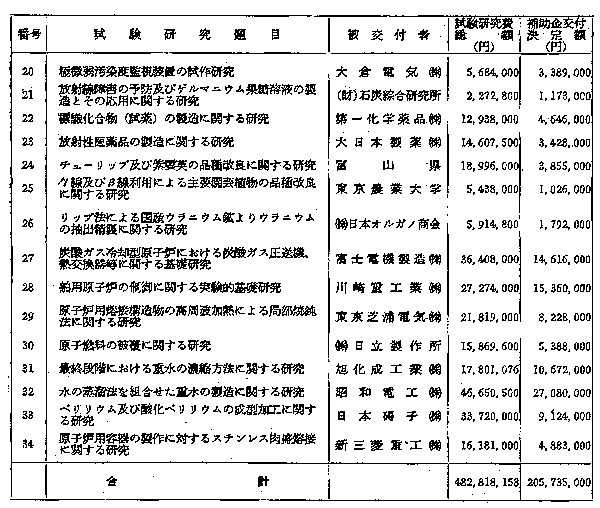 番号 試験研究題目 被交付者 試験研究費総額(円) 補助金交付決定額(円)
20 極微弱汚染度監視装置の試作研究 大倉電気㈱ 5,684,000 3,389,000
21 放射線障害の予防及びゲルマニウム果糖溶液の製
造とその応用に関する研究 (財)石炭綜合研究所 2,272,800 1,173,000
22 標識化合物(試薬)の製造に関する研究 第一化学薬品㈱ 12,938,000 4,646,000
23 放射性医薬品の製造に関する研究 大日本製薬㈱ 14,607,500 3,428,000
24 チューリップ及び紫雲英の品種改良に関する研究 富山県 18,996,000 2,855,000
25 γ線及びβ線利用による主要園芸植物の品種改良
に関する研究 東京農業大学 5,438,000 1,026,000
26 リップ法による国産ウラニウム鉱よりウラニウム
の抽出精製に関する研究 ㈱日本オルガノ商会 5,914,800 1,792,000
27 炭酸ガス冷却型原子炉における炭酸ガス圧送機、
熱交換器等に関する基礎研究 富士電機製造㈱ 36,408,000 14,616,000
28 舶用原子炉の制御に関する実験的基礎研究 川崎重工業㈱ 27,274,000 15,360,000
29 原子炉用熔接構造物の高周波加熱による局部焼鈍
法に関する研究 東京芝浦電気㈱ 21,819,000 8,228,000
30 原子燃料の被覆に関する研究 ㈱日立製作所 15,869,600 5,388,000
31 最終段階における重水の濃縮方法に関する研究 旭化成工業㈱ 17,801,076 10,672,000
32 水の蒸溜法を組合せた重水の製造に関する研究 昭和電工㈱ 46,650,500 27,080,000
33 ベリリウム及び酸化ベリリウムの成型加工に関す
る研究 日本碍子㈱ 33,720,000 9,124,000
34 原子炉用容器の製作に対するステンレス肉盛熔接
に関する研究 新三菱重工㈱ 16,181,000 4,883,000
合計 482,818,153 205,735,000